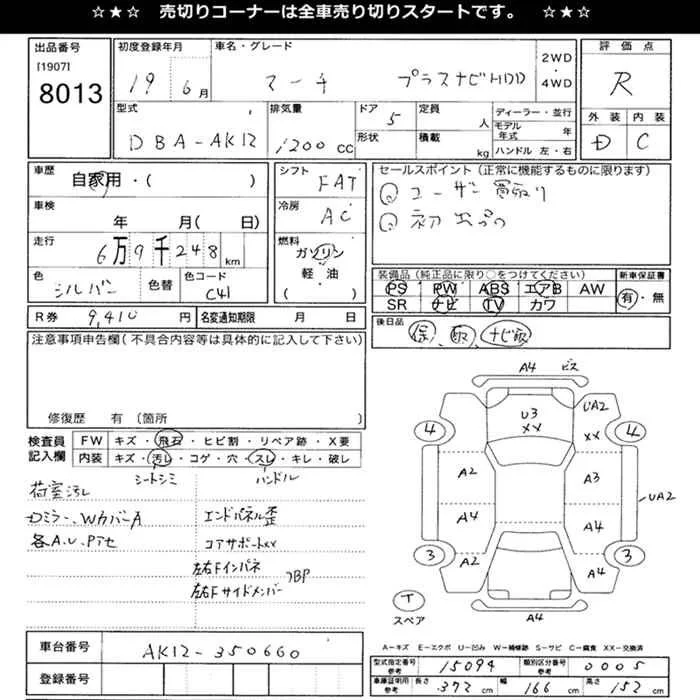 ☆ ★ ☆ 売切りコーナーは全車売り切りスタートです。 ☆ ★ ☆
出品番号
[1907]
8013
初度登録年月
19 6月
車名・グレード
マーチ プラスナビHDD
2WD
・
4WD
評価点
R
型式
DBA-AK12
排気量
1200 CC
ドア
5
形状
定員
人
積載
kg
ディーラー・並行
モデル年式 年
ハンドル 左・右
外装 内装
D C
車歴
自家用・( )
車検
年 月( 日)
走行
6万9千248km
色
シルバー
色替
色コード
C41
シフト
FAT
冷房
AC
燃料
ガソリン
軽・油
( )
セールスポイント(正常に機能するものに限ります)
①ユーザー買取り
②初出品
装備品(純正品に限り○をつけてください)
PS PW ABS エアB AW
SR ナビ TV カワ
新車保証書
有・無
R券 9,410 円
名変通知期限 月 日
後日品
保、取、ナビ取
注意事項申告欄(不具合内容等は具体的に記入して下さい)
修復歴 有(箇所 )
検査員記入欄
FW キズ・飛石・ヒビ割・リペア跡・X要
内装 キズ・汚レ・コゲ・穴・スレ・キレ・破レ
シートシミ ハンドル
荷室汚レ
Dミラー、WカバーA
各A.U.Pアセ
エンドパネル歪
コアサポートXX
左右Fインパネ
左右Fサイドメンバー
フBP
A4 ビス
U3
XX
UA2
XX
4 4
A2 A3
A4 A4
UA2
3 3
A2 A4
T
スペア
A4
A-キズ E-エクボ U-凹み W-補修跡 S-サビ C-腐食 XX-交換済
車台番号
AK12-350660
登録番号
型式指定番号
参考
15094
類別区分番号
参考
0005
車庫証明用
参考
長さ 372 cm
幅 166 cm
高さ 152 cm